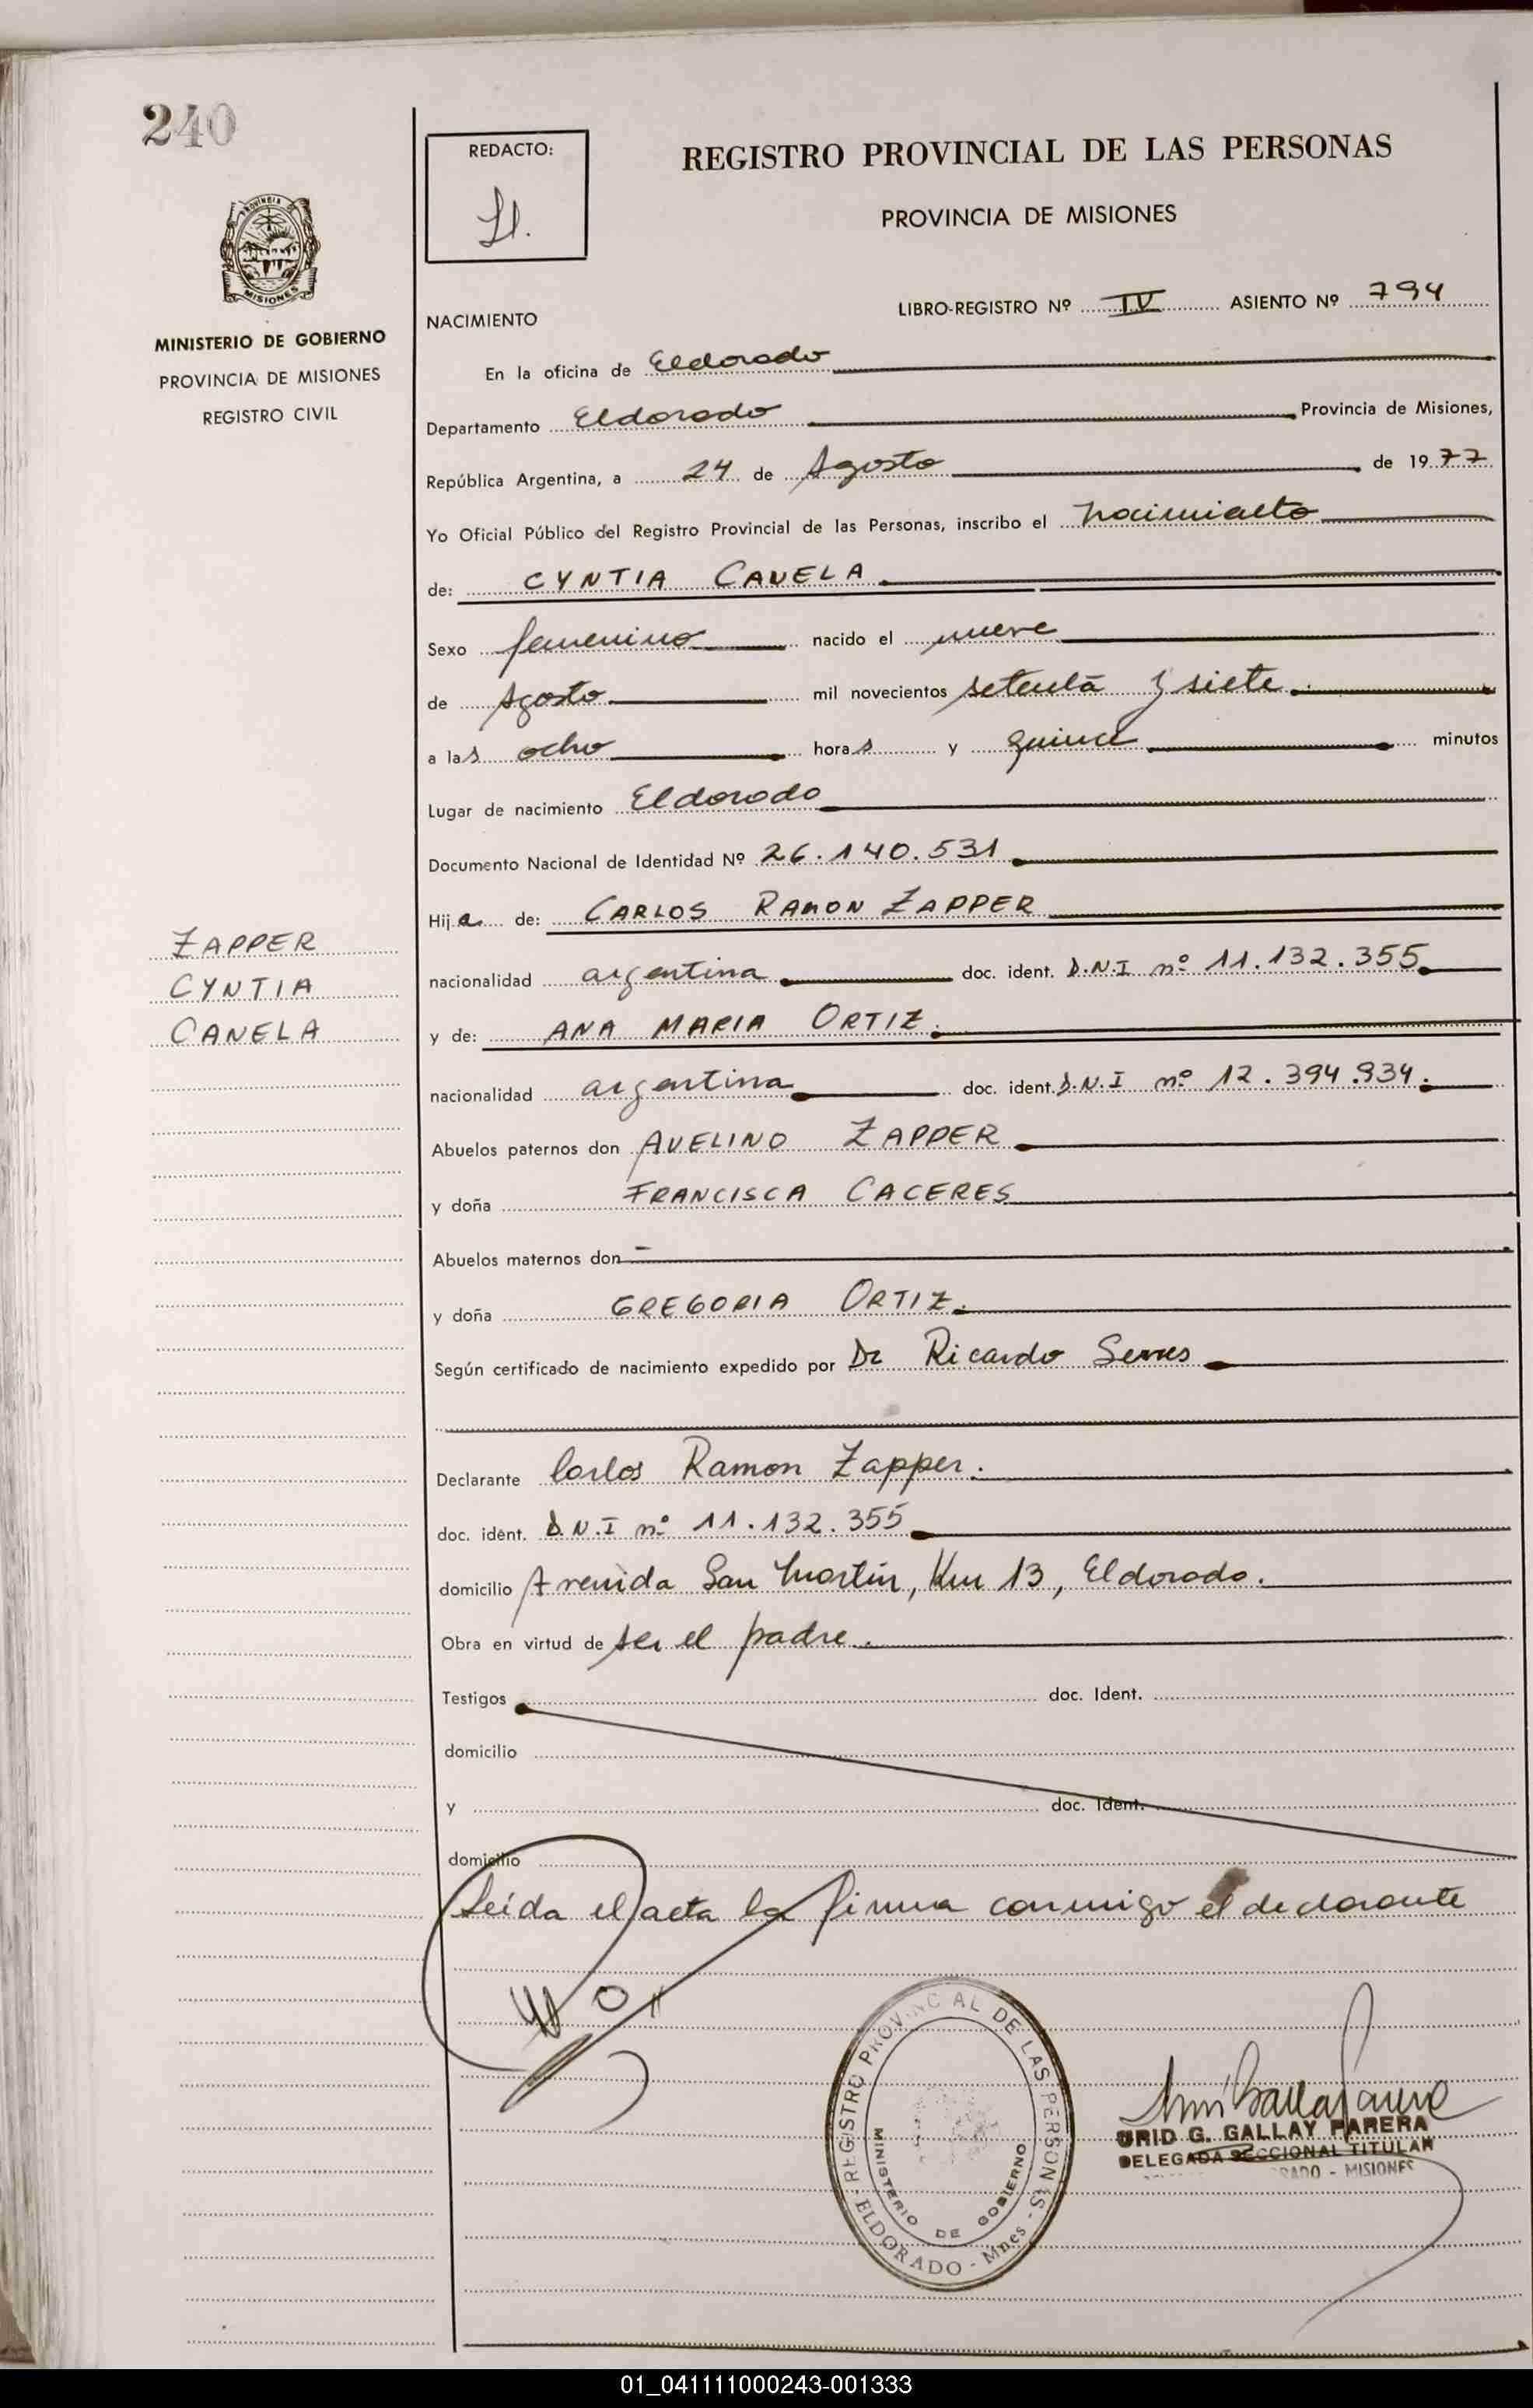 240
REDACTO:
REGISTRO PROVINCIAL DE LAS PERSONAS
PROVINCIA DE MISIONES
PROVINCIA DE
MISIONES
MINISTERIO DE GOBIERNO
PROVINCIA DE MISIONES
REGISTRO CIVIL
LIBRO-REGISTRO Nº IV ASIENTO Nº 794
NACIMIENTO
En la oficina de Eldorado
Departamento Eldorado Provincia de Misiones,
República Argentina, a 24 de Agosto de 1977
Yo Oficial Público del Registro Provincial de las Personas, inscribo el nacimiento
de: CYNTIA CANELA
Sexo femenino nacido el nueve
de Agosto mil novecientos setenta y siete
a las ocho horas y quince minutos
Lugar de nacimiento Eldorado
Documento Nacional de Identidad Nº 26.140.531
Hija de: CARLOS RAMON ZAPPER
ZAPPER
CYNTIA
CANELA
nacionalidad argentina doc. ident. D.N.I nº 11.132.355
y de: ANA MARIA ORTIZ.
nacionalidad argentina doc. ident. D.N.I nº 12.394.934.
Abuelos paternos don AVELINO ZAPPER
y doña FRANCISCA CACERES
Abuelos maternos don -
y doña GREGORIA ORTIZ.
Según certificado de nacimiento expedido por Dr Ricardo
Declarante Carlos Ramon Zapper.
doc. ident. D.N.I nº 11.132.355
domicilio Avenida San Martin, Km 13, Eldorado.
Obra en virtud de ser el padre.
Testigos doc. Ident.
domicilio
y doc. Ident.
domicilio
Leída el acta la firma conmigo el declarante
REGISTRO PROVINCIAL DE LAS PERSONAS - ELDORADO - Mnes -
MINISTERIO DE GOBIERNO
URID G. GALLAY PARERA
DELEGADA SECCIONAL TITULAR
- MISIONES
01_041111000243-001333